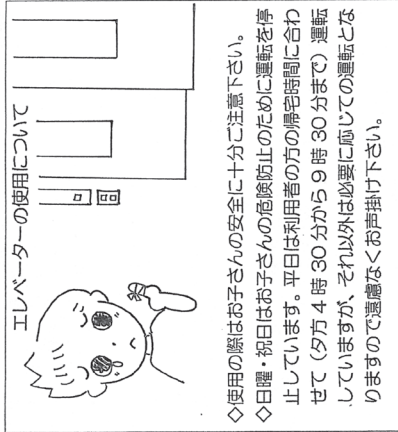 エレベーターの使用について
◇使用の際はお子さんの安全に十分ご注意下さい。
◇日曜・祝日はお子さんの危険防止のために運転を停
止しています。平日は利用者の方の帰宅時間に合わ
せて（夕方４時30分から９時30分まで）運転
していますが、それ以外は必要に応じての運転とな
りますので遠慮なくお声掛け下さい。